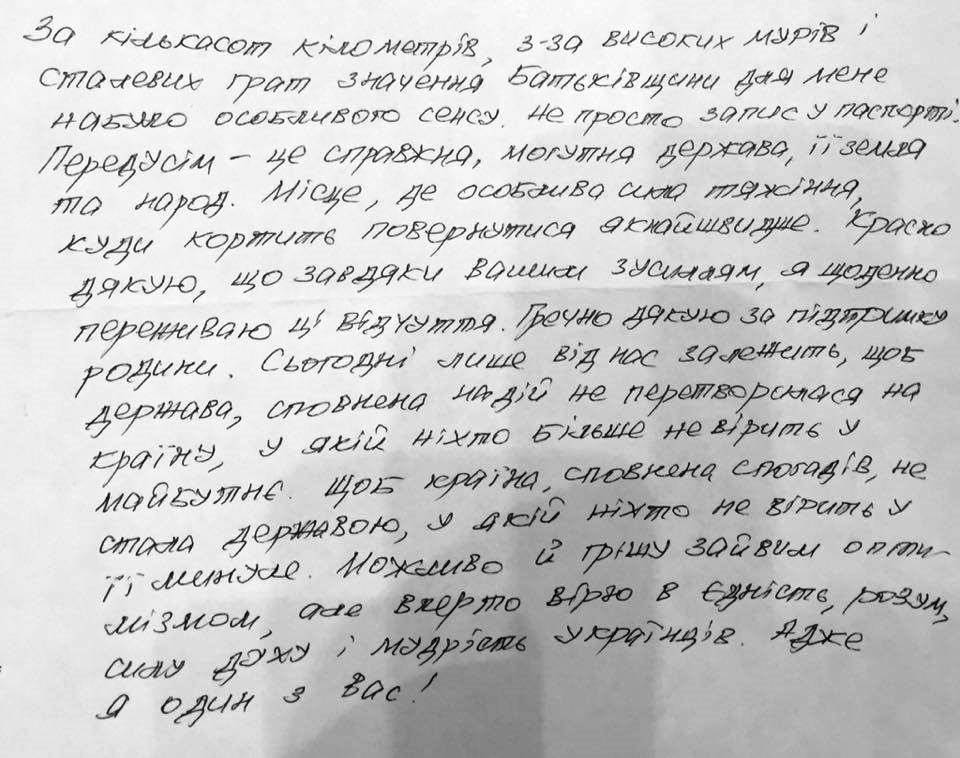 За кількасот кілометрів, з-за високих мурів і
сталевих грат значення Батьківщини для мене
набуло особливого сенсу. Не просто запис у паспорті.
Передусім – це справжна, могутна держава, її земля
та народ. Місце, де особлива сила тяжіння,
куди кортить повернутися якнайшвидше. Красно
дякую, що завдяки вашим зусиллям, я щоденно
переживаю ці відчуття. Ґречно дякую за підтримку
родини. Сьогодні лише від нас залежить, щоб
держава, сповнена надій не перетворилася на
країну, у якій ніхто більше не вірить у
майбутнє. Щоб країна, сповнена спогадів, не
стала державою, у якій ніхто не вірить у
її минуле. Можливо й грішу зайвим опти-
мізмом, але вперто вірю в Єдність, розум,
силу духу і мудрість українців. Адже
я один з вас!